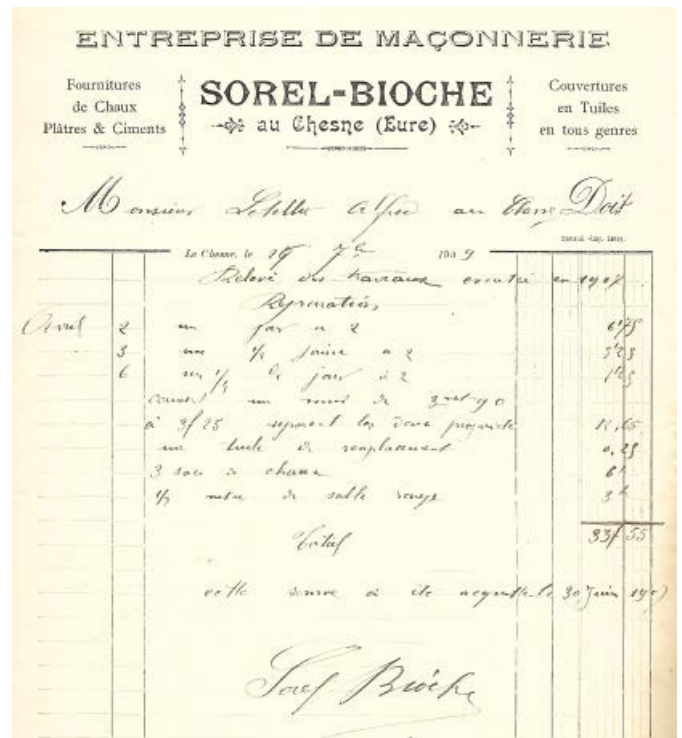 ENTREPRISE DE MAÇONNERIE
Fournitures
de Chaux
Plâtres & Ciments
SOREL-BIOCHE
au Chesne (Eure)
Couvertures
en Tuiles
en tous genres
Monsieur Letellier Alfred au Chesne Doit
Le Chesne, le 190
Relevé des travaux executé en 1907
Réparations
Avril 2 un jour a 2
3 une 1/2 a 2
6 un 1/4 de jour à 2 1f25
couvert un de
à 3f25 les deux propriété 12,65
une tuile de remplacement 0,25
3 sacs de chaux 6f
1/2 metre de sable rouge 3f
Total 33f55
cette somme a ete acquitté le 30 Juin
Sorel Bioche